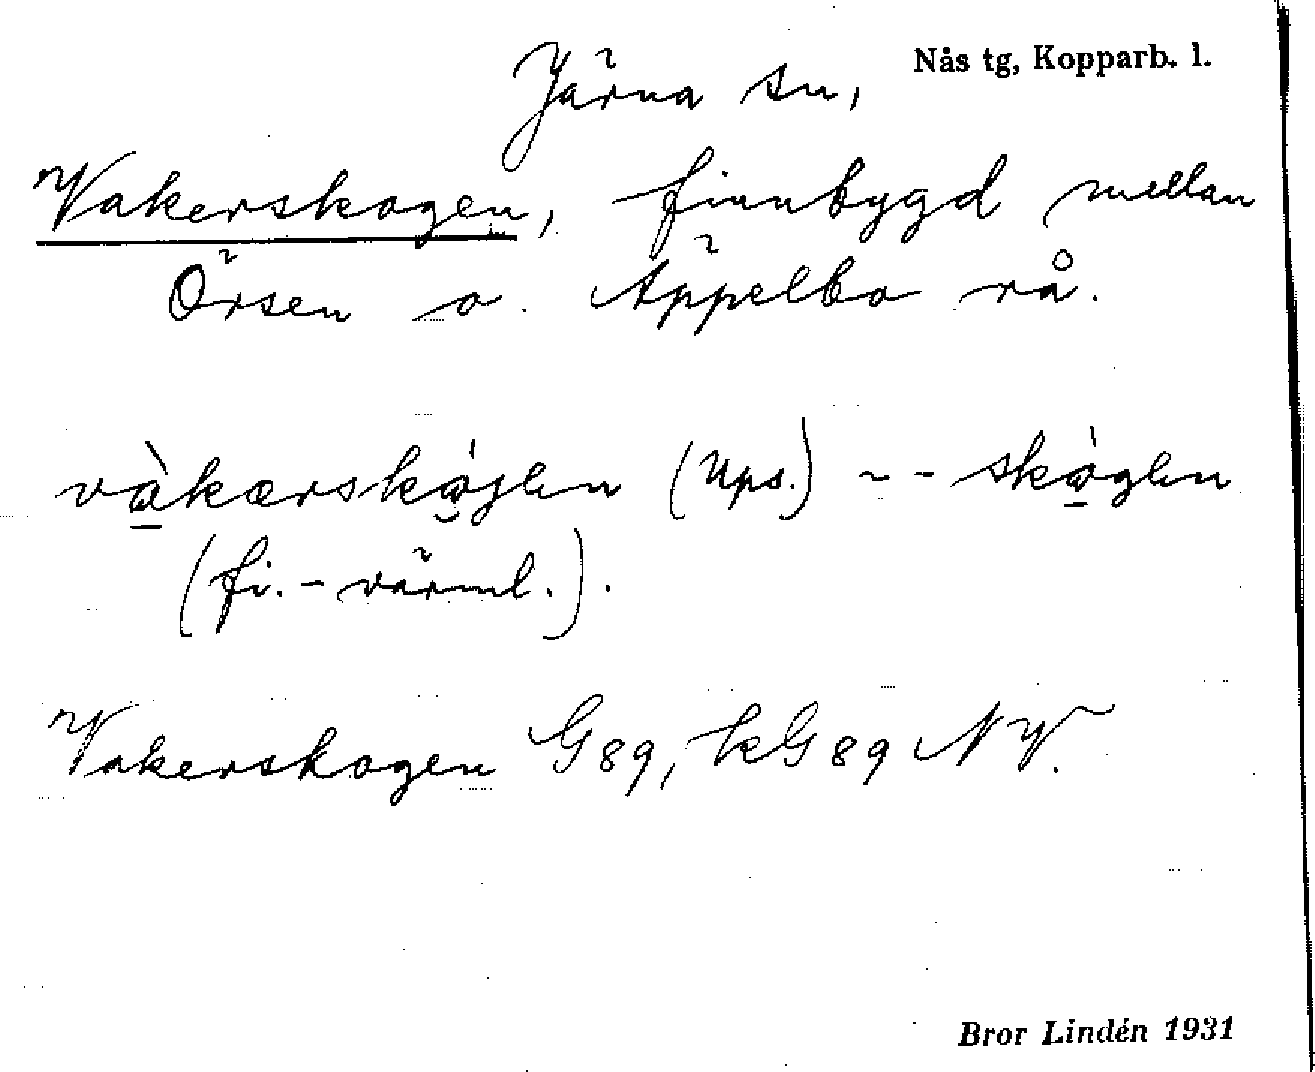 Järna sn, Nås tg, Kopparb. l.
Vakerskogen, finnbygd mellan
Örsen o. Äppelbo rå.
vàkærskó̯glen (Ups.) ~ - - skòglen
(fi. - värml.).
Vakerskogen G89, kG89 NV.
Bror Lindén 1931